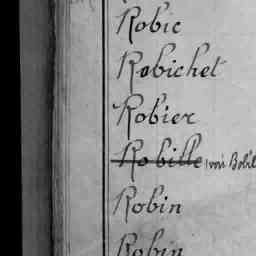 Robic
Robichet
Robier
Robille (voir Bobil
Robin
Robin